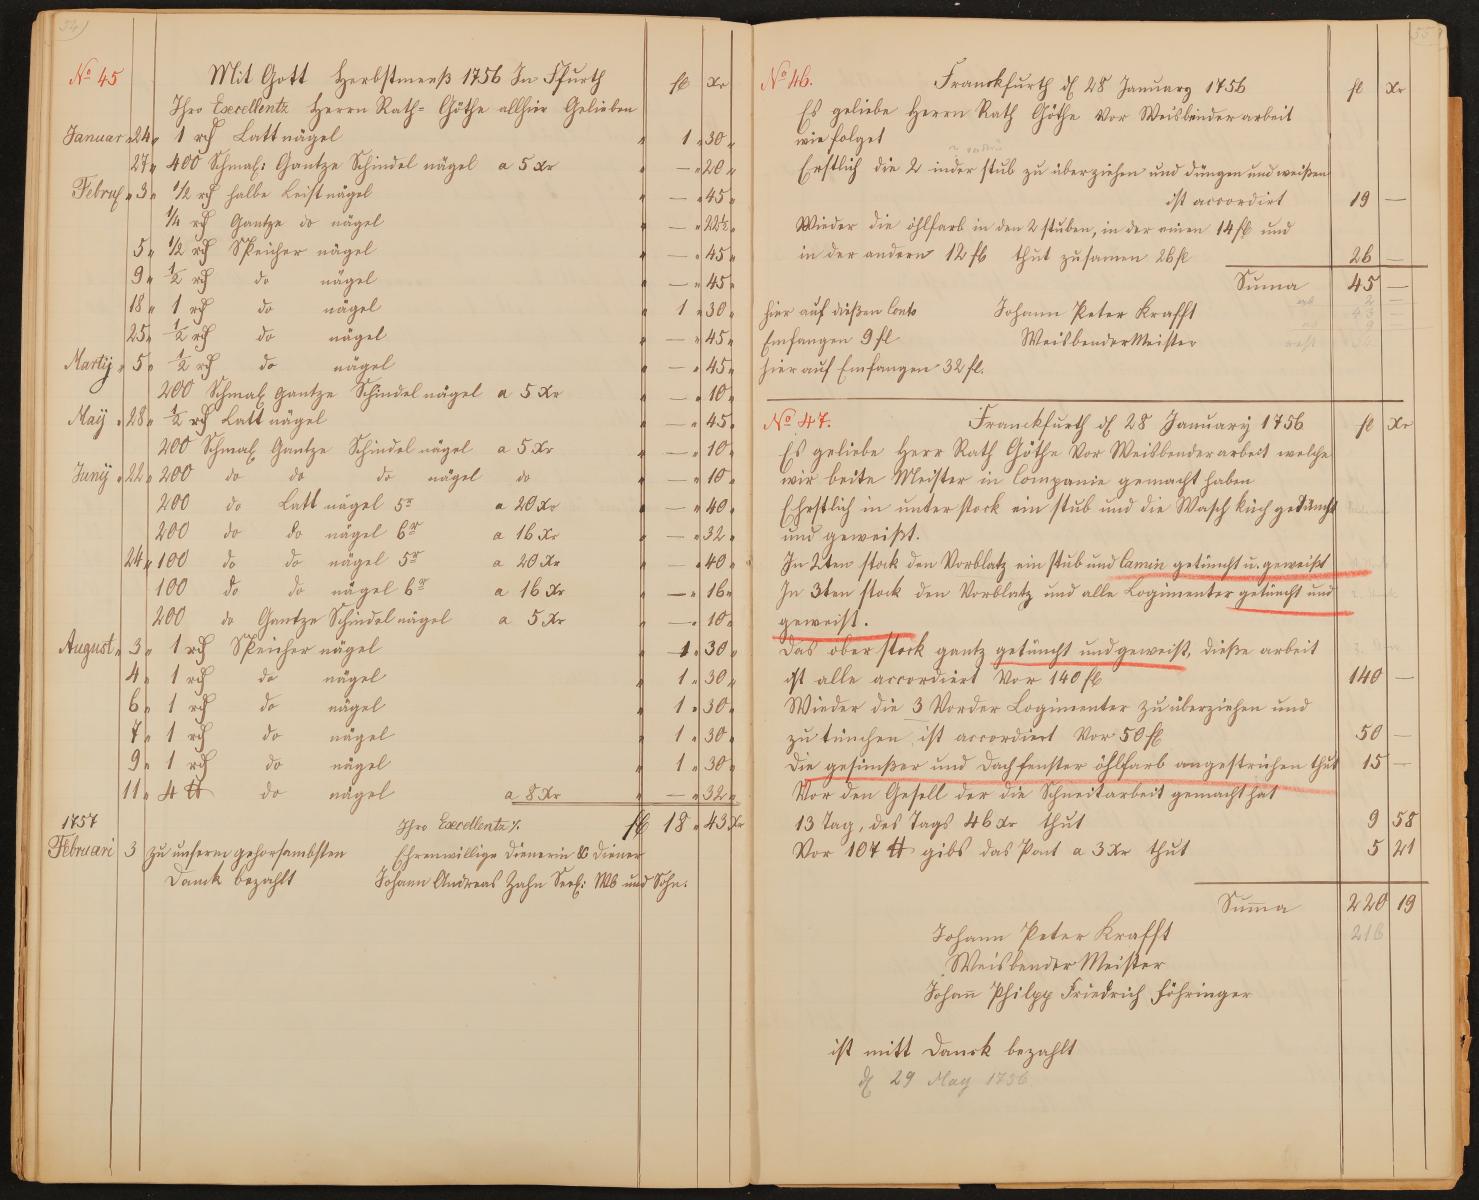 54
No 45 Mit Gott Herbstmeeß 1756 In Ffurth fl Xr
Ihro Excellentz Herrn Rath= Göthe allhier Gelieben
Januar 24 1 rch Lattnägel 1 30
27 400 Schmal: Gantze Schindel nägel a 5 Xr — 20
Februf 3 1/2 rch halbe Leist nägel — 45
1/4 rch Gantze do nägel — 22½
5 1/2 rch Speicher nägel — 45
9 1/2 rch do nägel — 45
18 1 rch do nägel 1 30
25 1/2 rch do nägel — 45
Martij 5 1/2 rch do nägel — 45
200 Schmal gantze Schindel nägel a 5 Xr — 10
May 28 1/2 rch Latt nägel — 45
200 Schmal Gantze Schindel nägel a 5 Xr — 10
Junÿ 22 200 do do do nägel do — 10
200 do Latt nägel 5r a 20 Xr — 40
200 do do nägel 6r a 16 Xr — 32
24 100 do do nägel 5r a 20 Xr — 40
100 do do nägel 6r a 16 Xr — 16
200 do Gantze Schindel nägel a 5 Xr — 10
August 3 1 rch Speicher nägel 1 30
4 1 rch do nägel 1 30
6 1 rch do nägel 1 30
7 1 rch do nägel 1 30
9 1 rch do nägel 1 30
11 4 ℔ do nägel a 8 Xr — 32
1757 Ihro Excellentz fl 18 43 Xr
Februari 3 zu unserm gehorsambsten Ehrenwillige Dienerin & Diener
Danck bezahlt Johann Andreas Zahn Seel: Wb und Sohn.
55
No 46. Franckfurth d 28 January 1756 fl Xr
Es geliebe Herrn Rath Göthe Vor Weisbinder arbeit
wie folget
Erstlich die 2 in der stub zu überziehen und düngen und weißen
ist accordirt 19 —
Wieder die öhlfarb in den 2 stuben, in der einen 14 fl und
in der andern 12 fl thut zusamen 26 fl 26 —
Suma 45 —
hier auf dießen Conto Johann Peter Krafft
Emfangen 9 fl Weisbender Meister
hier auf Emfangen 32 fl.
No 47. Franckfurth d 28 January 1756 fl Xr
Es geliebe Herr Rath Göthe Vor Weisbender arbeit welche
wir beite Meister in Companie gemacht haben
Ehrstlich in unter stock ein stub und die Wasch küch getüncht
und geweißt.
In 2ten stock den Vorblatz ein stub und Camin getüncht u. geweißt
In 3ten stock den Vorblatz und alle Logimenter getüncht und
geweist.
Das ober stock gantz getüncht und geweist, dieße arbeit
ist alle accordiert Vor 140 fl 140 —
Wieder die 3 Vorder Logimenter zu überziehen und
zu tünchen, ist accordiert Vor 50 fl 50 —
Die gesimßer und Dachfenster öhlfarb angestrichen thut 15 —
Vor den Gesell der die Schneitarbeit gemacht hat
13 Tag, des Tags 46 Xr thut 9 58
Vor 107 ℔ gibs das Pont a 3 Xr thut 5 21
Suma 220 19
216
Johann Peter Krafft
Weisbender Meister
Johann Philpp Friedrich Föhringer
ist mitt Danck bezahlt
d 29 May 1756